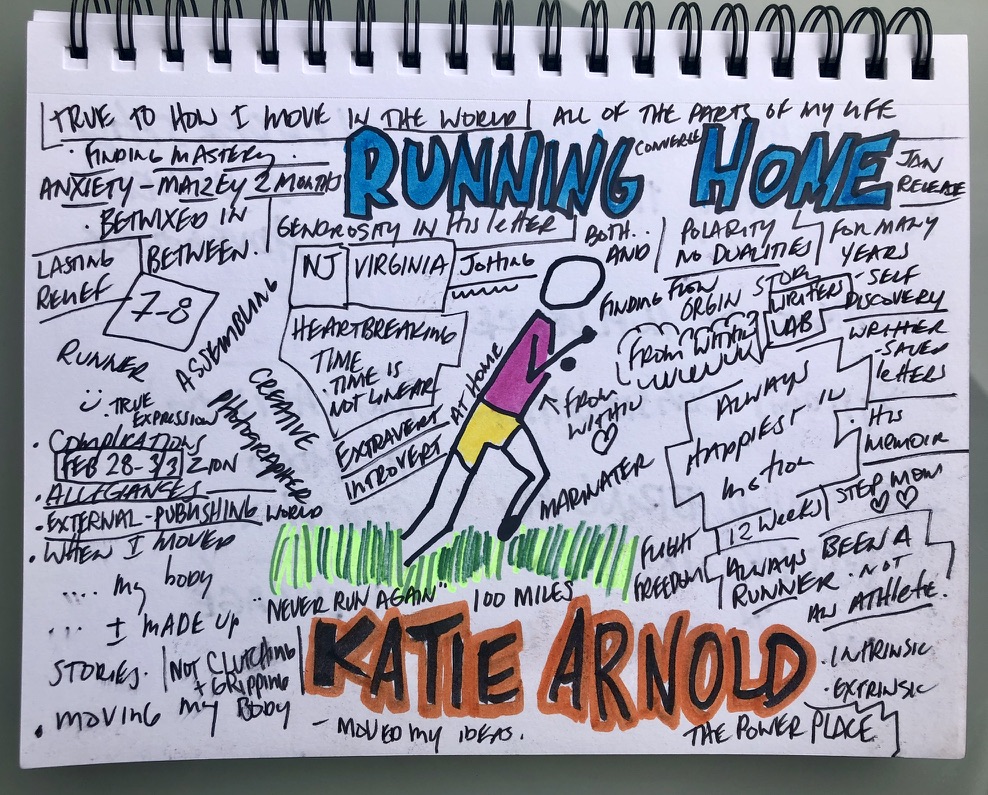 TRUE TO HOW I MOVE IN THE WORLD
ALL OF THE PARTS OF MY LIFE
CONVERGE
RUNNING HOME
JAN
RELEASE
· FINDING MASTERY ·
ANXIETY - MAIZEY 2 MONTHS
· BETWIXED IN
BETWEEN.
GENOROSITY IN His letter
BOTH..
AND
POLARITY
NO DUALITIES
FOR MANY
YEARS
- SELF
DISCOVERY
WRITER
- SAVED
letters
· His
MEMOIR
STEP MOM
LASTING
RELIEF
7-8
NJ
VIRGINIA
Jotting
FINDING FLOW
ORGIN STORY
WRITERS
LAB
FROM WITHIN
HEARTBREAKING
TIME
· TIME IS
NOT LINEAR
ASSEMBLING
CREATIVE
PHOTOGRAPHER
RUNNER
· TRUE
EXPRESSION
EXTRAVERT
INTROVERT
AT HOME
FROM
WITHIN
ALWAYS
HAPPIEST IN
motion
· COMPLICATIONS
FEB 28-3/3 ZION
· ALLEGIANCES
· EXTERNAL-PUBLISHING WORLD
· WHEN I MOVED
.... my body
... I MADE UP
STORIES.
NOT CLUTCHING
+ GRIPPING
my BODY
· moving
MARINATER
12 WEEKS
FLIGHT
FREEDOM
ALWAYS BEEN A
RUNNER · NOT
AN ATHLETE.
"NEVER RUN AGAIN"
100 MILES
KATIE ARNOLD
· INTRINSIC
· EXTRINSIC
- MOVED my IDEAS.
THE POWER PLACE